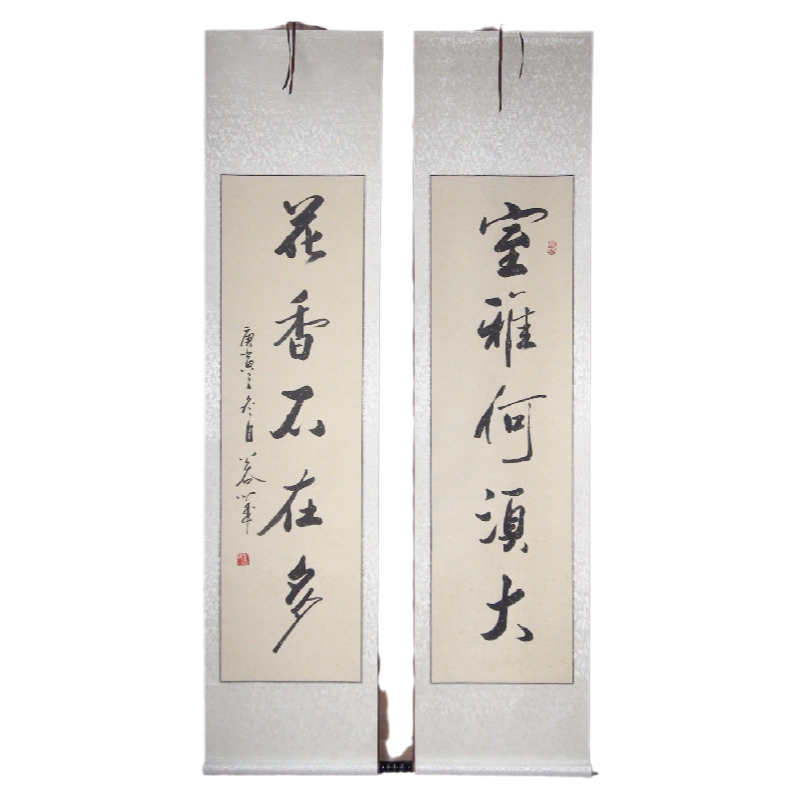 室雅何須大
花香不在多
庚寅之冬月